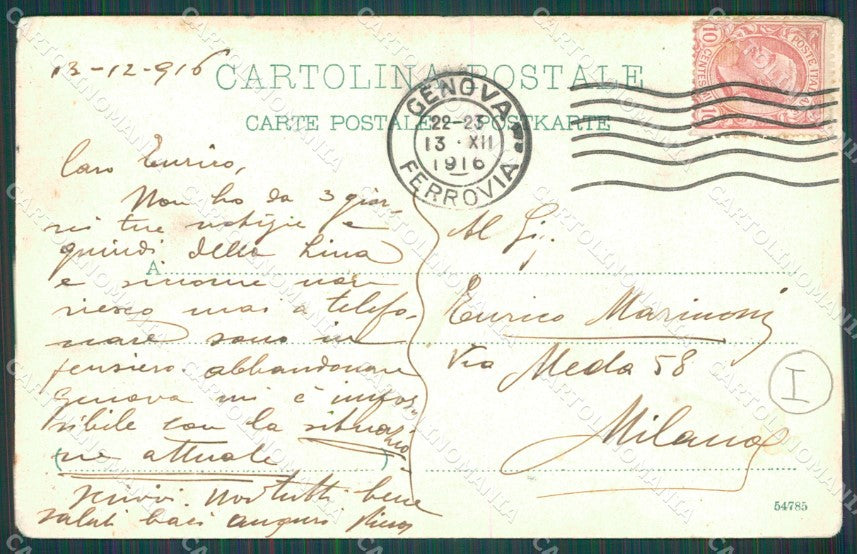 13-12-916
CARTOLINA POSTALE
CARTE POSTALE - POSTKARTE
GENOVA
22-23
13 · XII
1916
FERROVIA
10 CENTES
POSTE ITAL
10
Caro Enrico,
Non ho da 3 gior-
ni tue notizie e
quindi della Lina
A
e siccome non
riesco mai a telefo-
nare sono in
pensiero abbandonare
Genova mi è impos-
sibile con la situazio-
ne attuale
scrivi. Noi tutti bene
saluti baci auguri
Al Sig.
Enrico Marinoni
Via Meda 58
Milano
I
54785
CARTOLINOMANIA